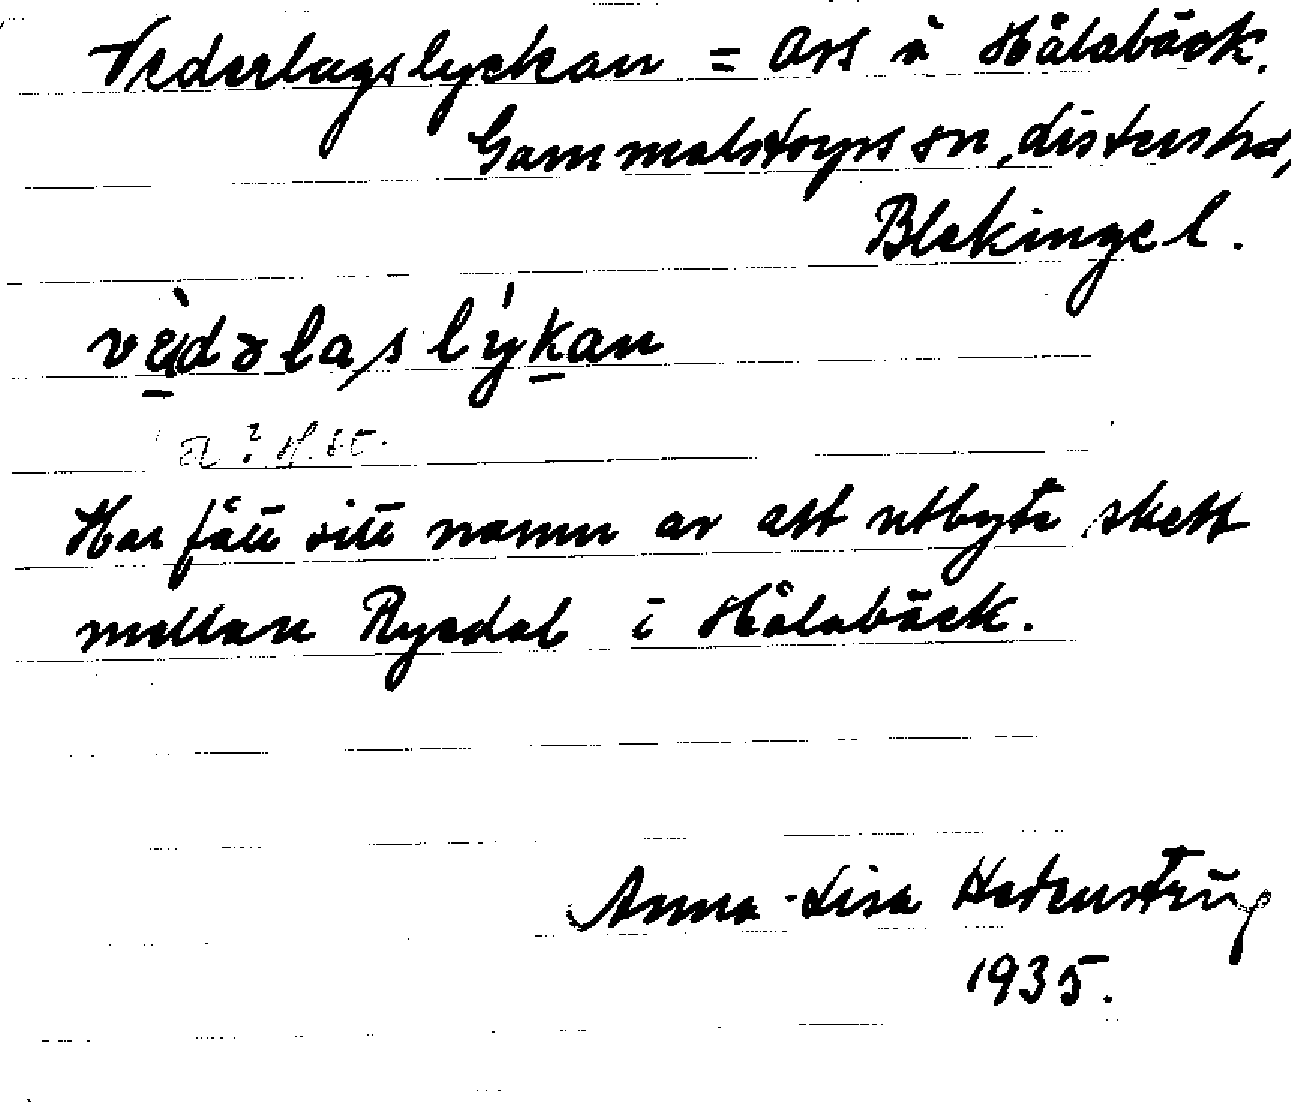 Vederlagslyckan = Ars i Hålabäck.
Gammalstorps sn, Listers hd,
Blekinge l.
vèdəlaslýkan
a? H. St.
Har fått sitt namn av att utbyte skett
mellan Ryedal i Hålabäck.
Anna-Lisa
1935.